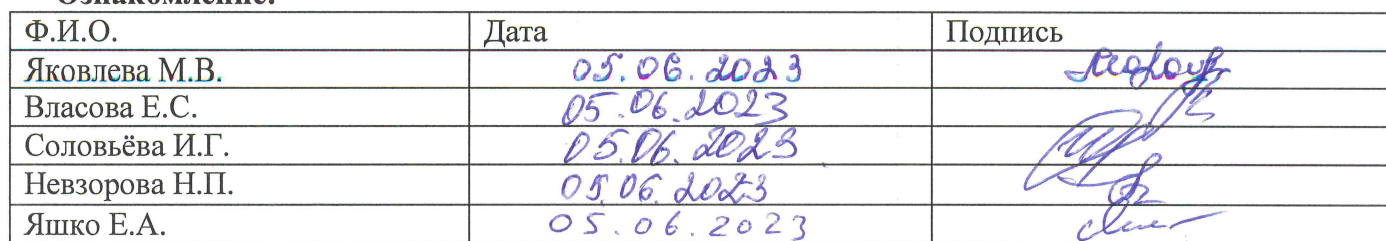 Ознакомление:
Ф.И.О. Дата Подпись
Яковлева М.В. 05.06.2023
Власова Е.С. 05.06.2023
Соловьёва И.Г. 05.06.2023
Невзорова Н.П. 05.06.2023
Яшко Е.А. 05.06.2023